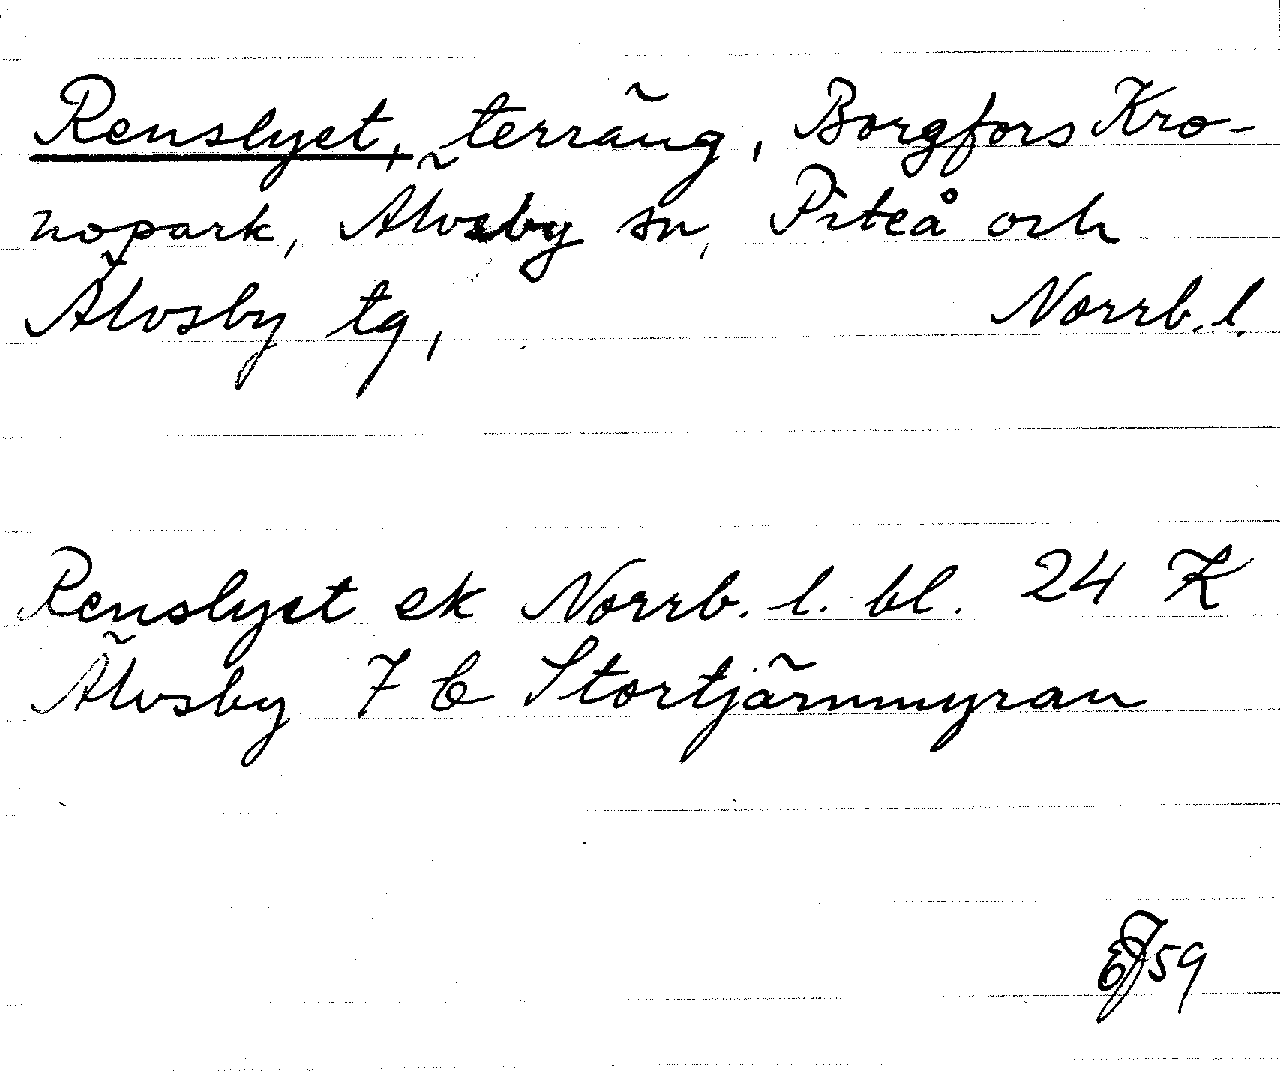 Renslyet, terräng, Borgfors Kro-
nopark, Älvsby sn, Piteå och
Älvsby tg, Norrb. l.
Renslyet ek Norrb. l. bl. 24 K
Älvsby 7 C Stortjärnmyran
59